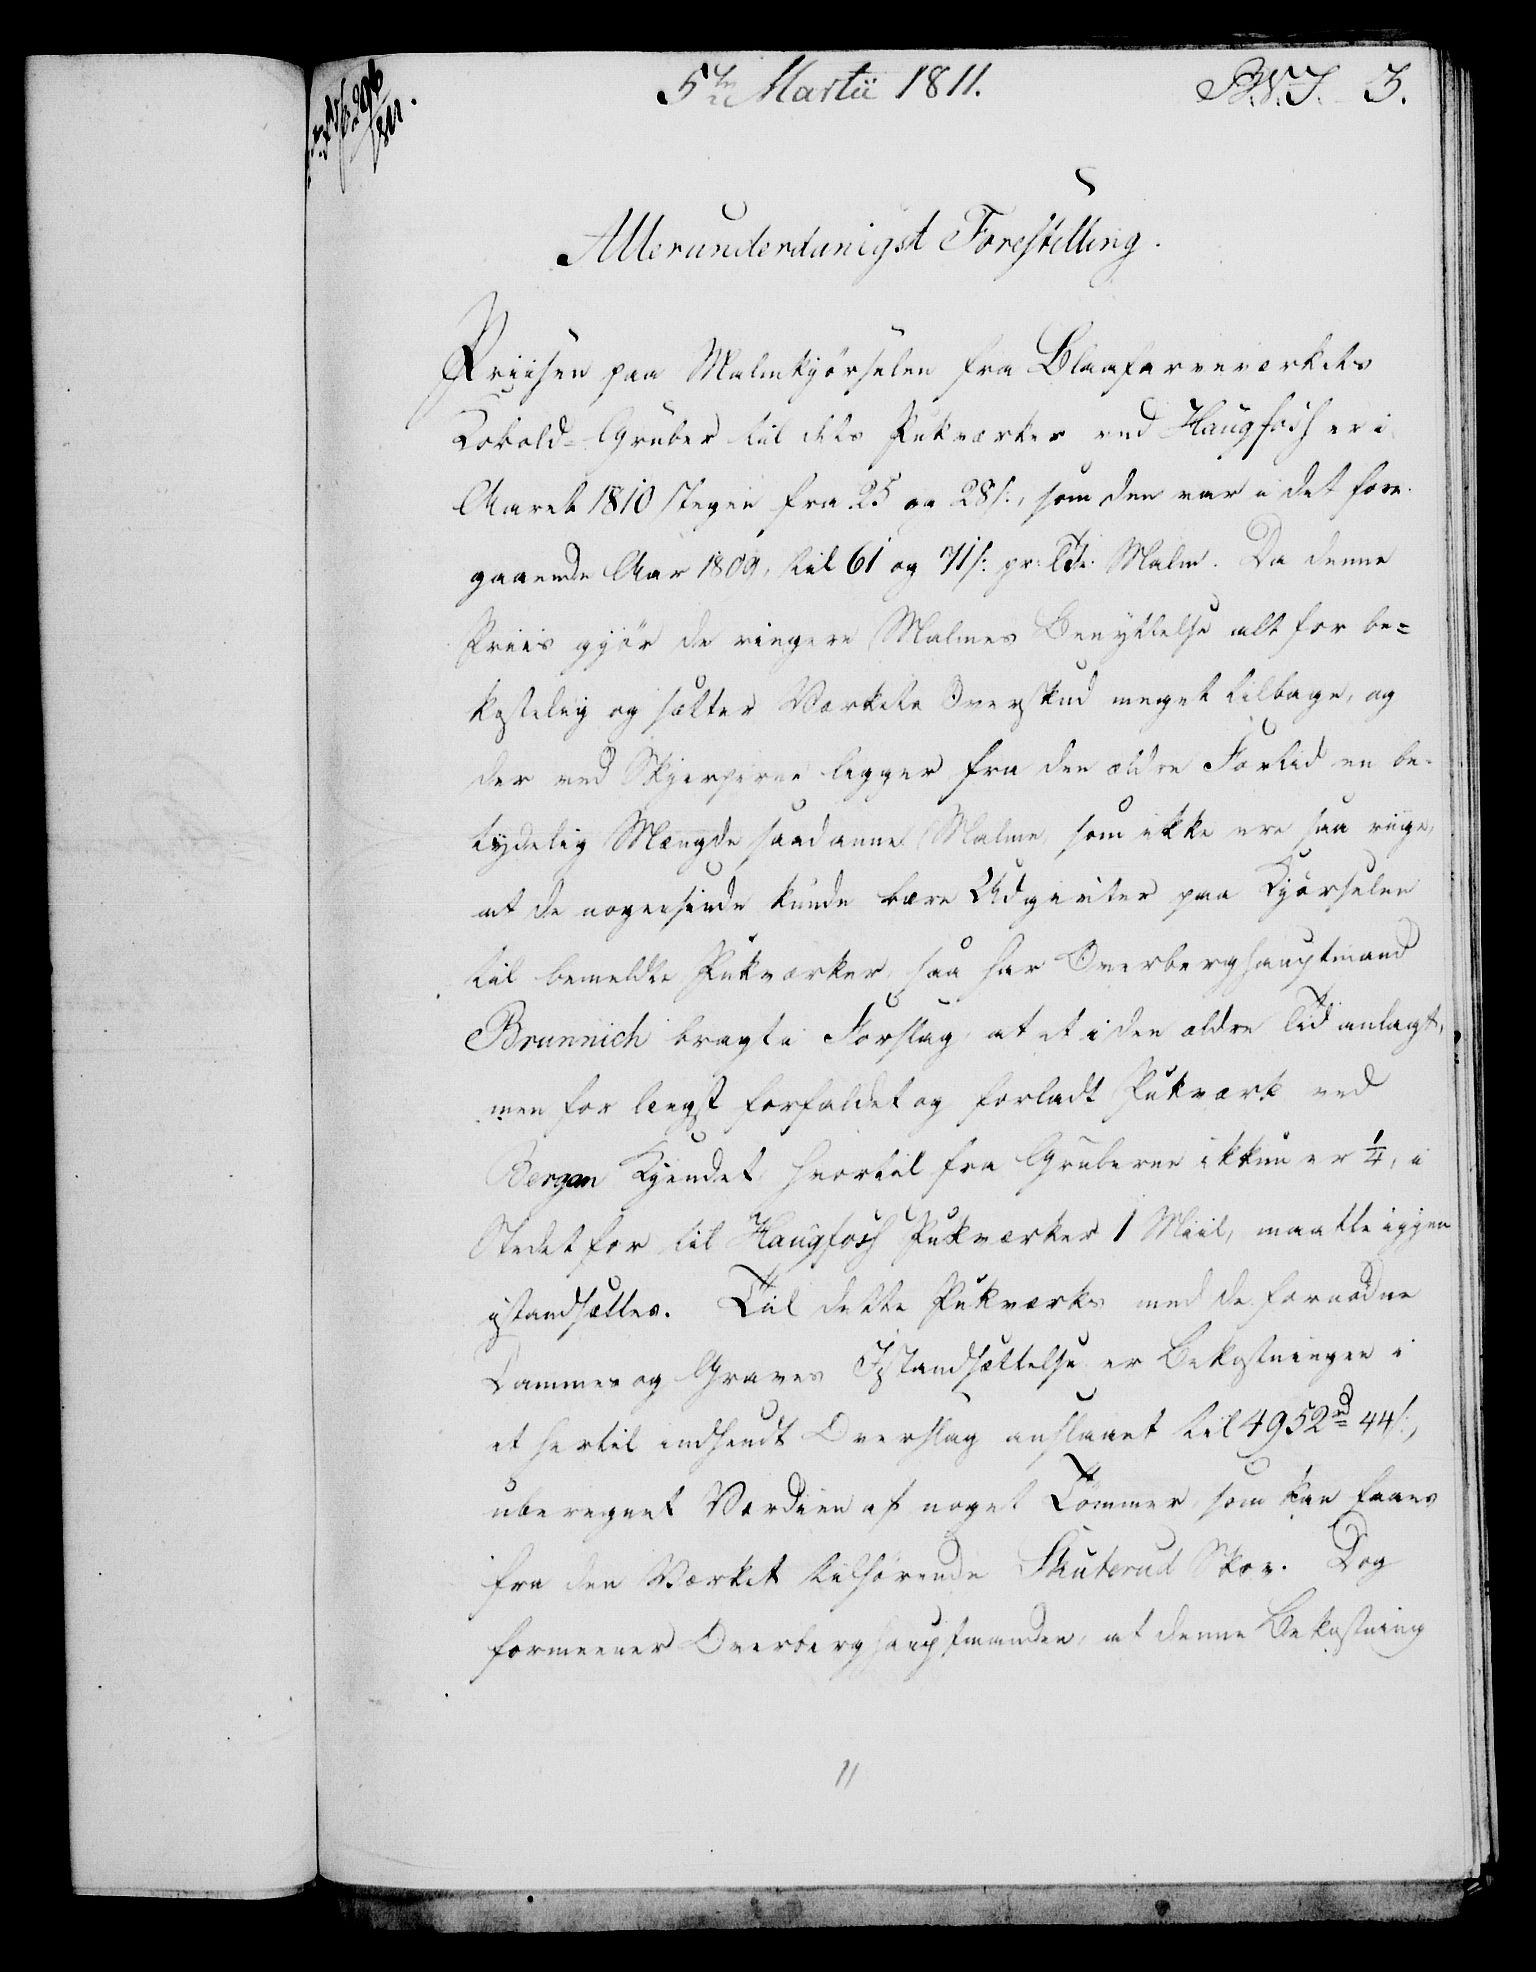 5te Martii 1811.
B.V.J. 3.
Allerunderdanigst Forestilling.
Priisen paa Malmkjørselen fra Blaafarveværkets
Kobold-Gruber til dets Pukværker ved Haugfosh er i
Aaret 1810 stegen fra 25 og 28 s:, som den var i det fore-
gaaende Aar 1809, til 61 og 71 s: pr: Tde: Malm. Da denne
Priis gjør de ringere Malmes Benyttelse alt for be=
kostelig og sætter Værkets Overskud meget tilbage, og
der ved Skjerperne ligger fra den ældre Fortid en be-
tydelig Mængde saadanne Malme, som ikke ere saa riige,
at de nogensinde kunde bære Udgivter paa Kjørselen
til bemeldte Pukværker, saa har Overberghauptmand
Brunnich bragt i Forslag, at et i den ældre Tid anlagt,
men for længst forfaldet og forladt Pukværk ved
Bergan Kjendet, hvortil fra Gruberne ikkun er 1/4, i
Stedet for til Haugfosh Pukværker 1 Miil, maatte igjen
istandsættes. Til dette Pukværks med de fornødne
Dammes og Graves Istandsættelse er Bekostningen i
et hertil indsendt Overslag anslaaet til 4952 rd 44 s:,
uberegnet Værdien af noget Tømmer, som kan faaes
fra den Værket tilhørende Skuterud Skov. Dog
formeener Overberghauptmanden, at denne Bekostning
11